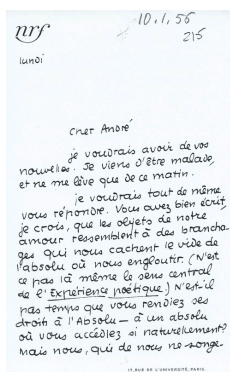 nrf
10.1.56
215
lundi
Cher André
je voudrais avoir de vos
nouvelles. Je viens d'être malade,
et ne me lève que de ce matin.
je voudrais tout de même
vous répondre. Vous avez bien écrit,
je crois, que les objets de notre
amour ressemblent à des brancha-
ges qui nous cachent le vide de
l'absolu où nous engloutir. (N'est
ce pas là même le sens central
de l'Expérience poétique.) N'est-il
pas temps que vous rendiez ses
droits à l'Absolu — à un absolu
où vous accédiez si naturellement?
Mais nous, qui de nous ne songe-
17, RUE DE L'UNIVERSITÉ, PARIS.